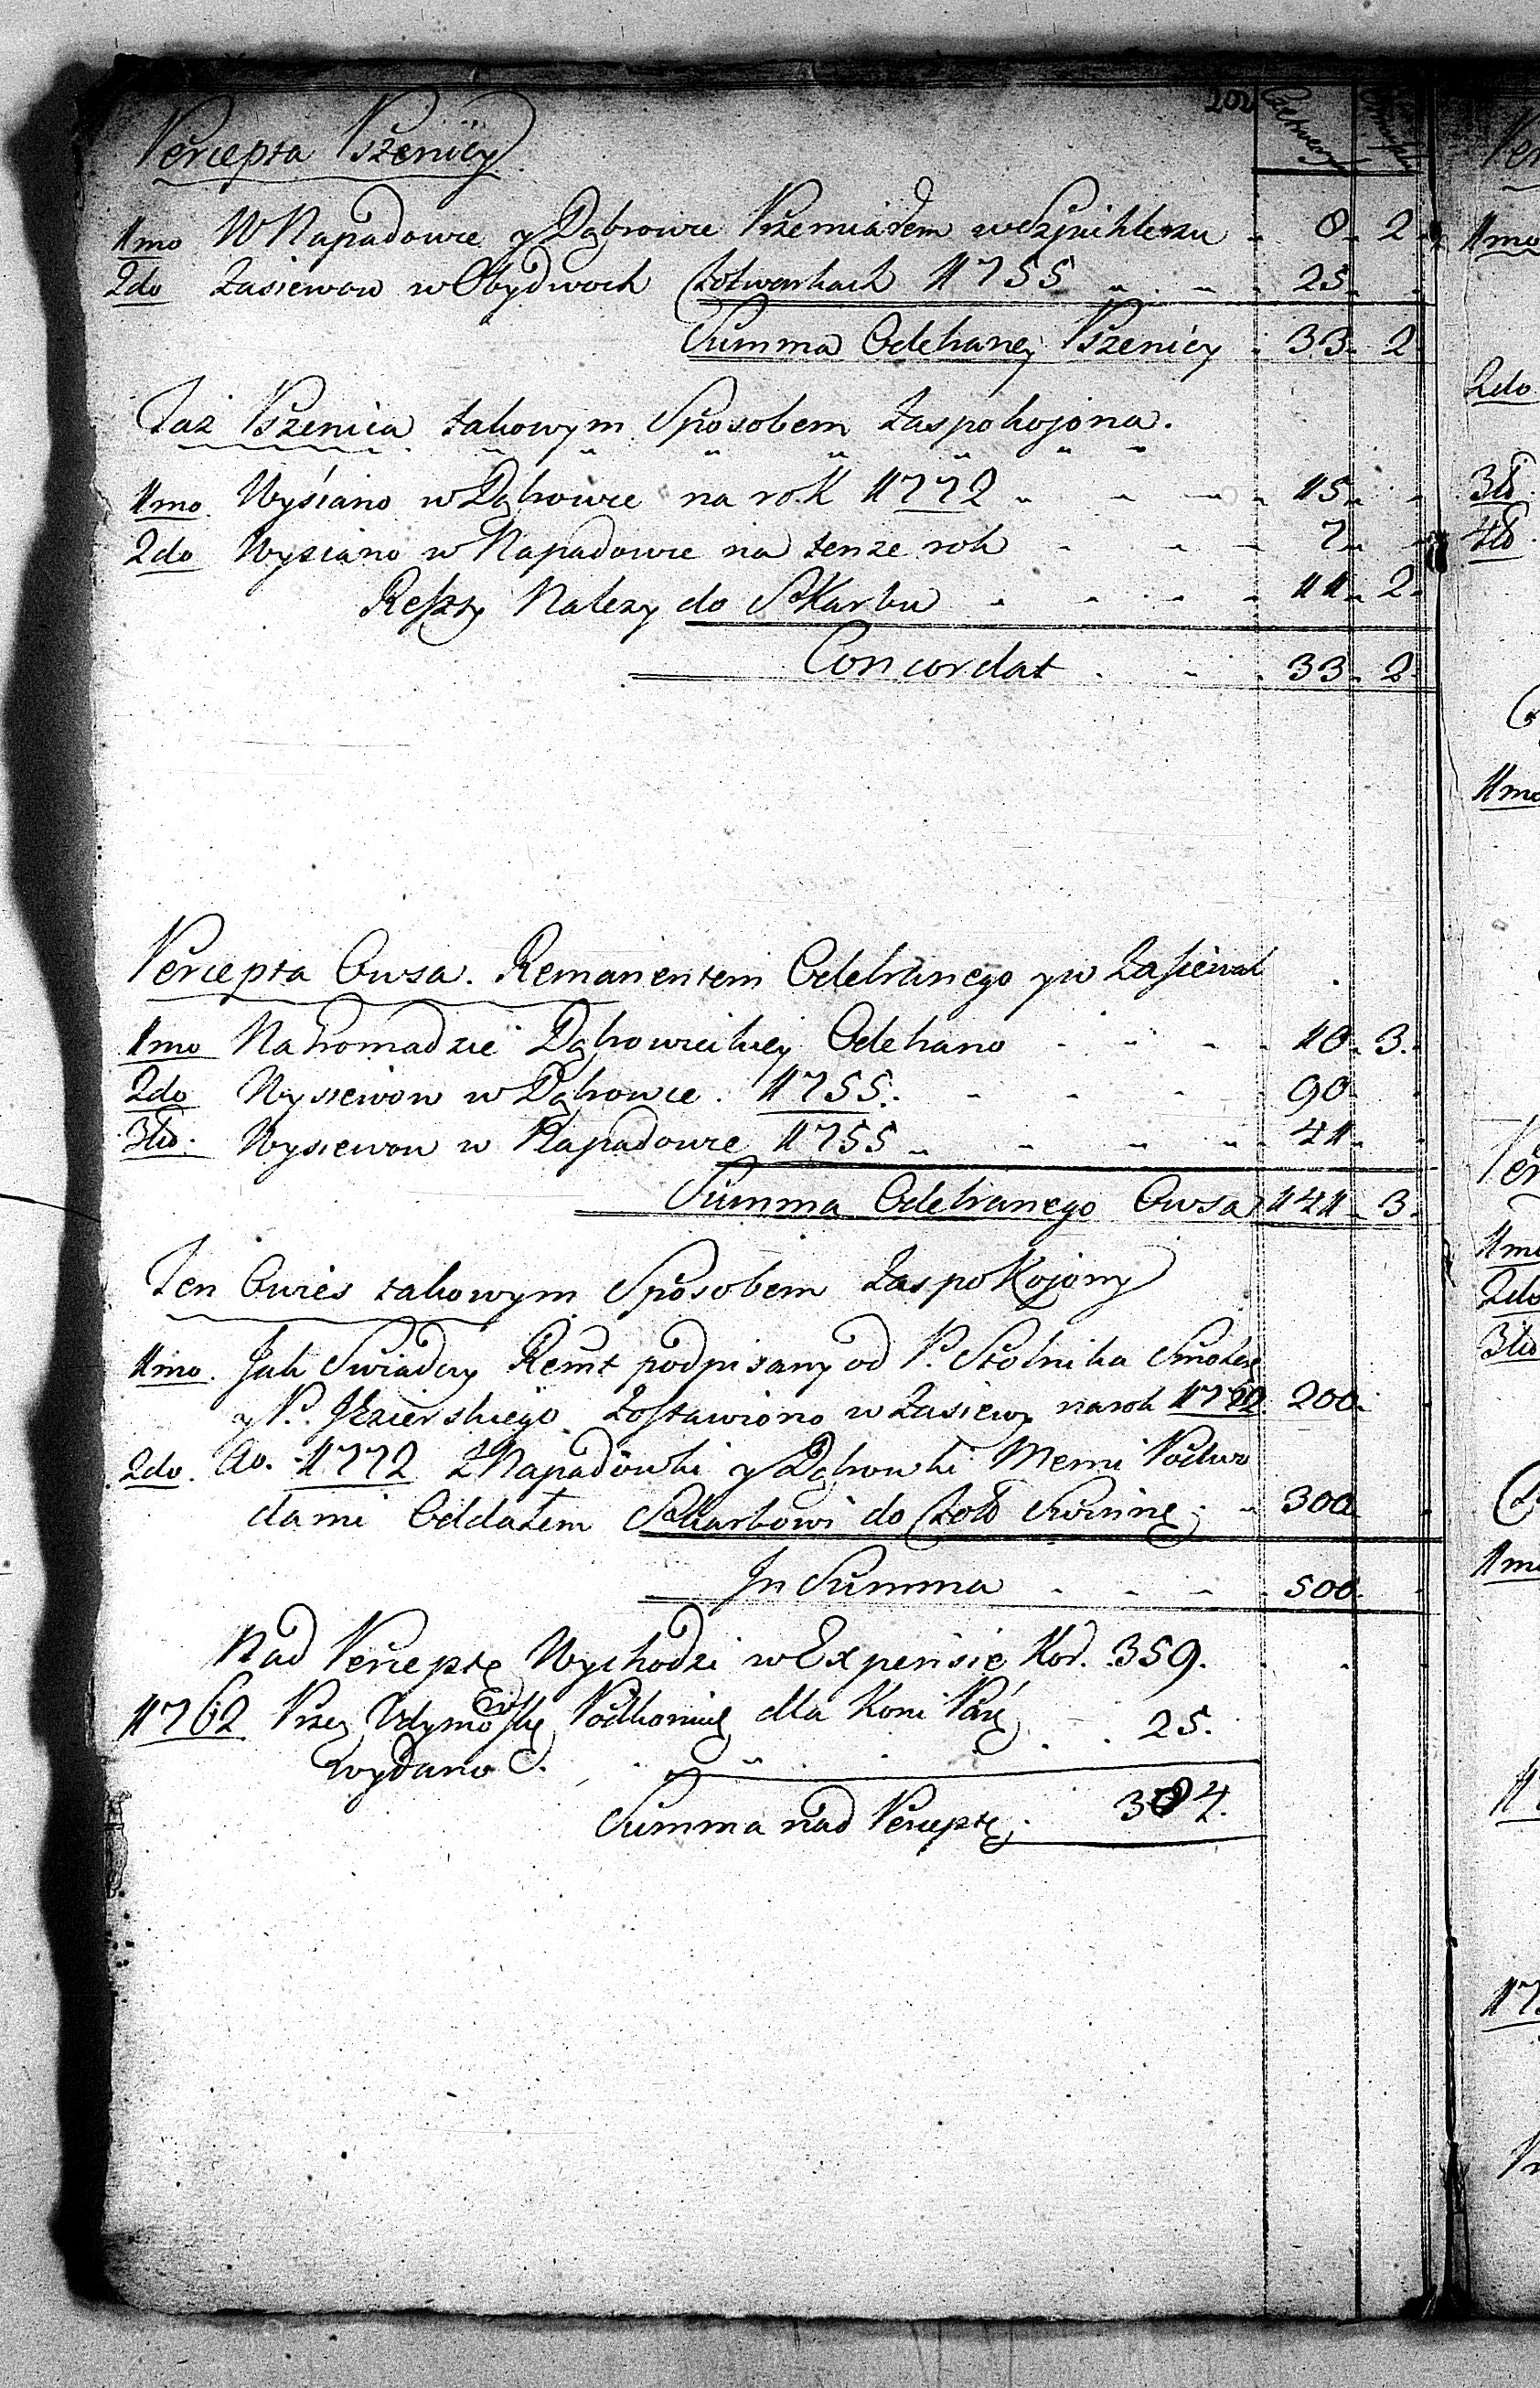 202
Percepta Pszenicy
1mo W Napadowce y Dąbrowce Przemiarem w Szpichlerzu 8 2
2do Zasiewow w Obydwoch folwarkach 1755 25
Summa Odebraney Pszenicy 33 2
Taż Pszenica takowym Sposobem Zaspokojona.
1mo Wysiano w Dąbrowce na rok 1772 15
2do Wysiano w Napadowce na tenze rok 7
Reszty Nalezy do Skarbu 11 2
Concordat 33 2
Percepta Owsa. Remanentem Odebranego y w Zasiewach
1mo Na hromadzie Dąbrowieckiey Odebrano 10 3
2do Wysiewow w Dąbrowce. 1755. 90
3tio. Wysiewow w Napadowce 1755 41
Summa Odebranego Owsa 141 3
Ten Owies takowym Sposobem Zaspokojony
1mo. Jak Swiadczy Remt podpisany od P. Stolnika
y P. Jezierskiego Zostawiono w Zasiewy na rok 200
2do. Ao. 1772 z Napadowki y Dąbrowki Memi Podwo
dami Oddałem Skarbowi do 300
In Summa 500
Nad Perceptę Wychodzi w Expensie Kor. 359.
1762 Przez Podkoniuszę dla Koni 25.
wydano
Summa nad Perceptę. 384.
1mo
2do
3tio
4to
1mo
1mo
2do
3tio